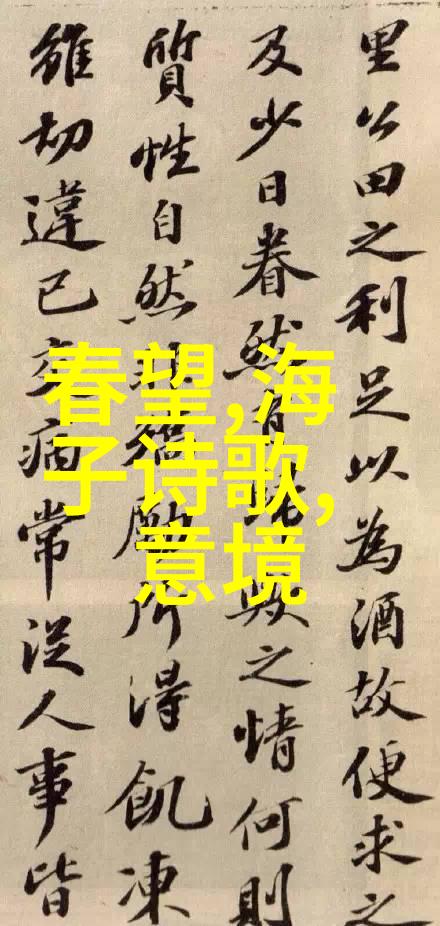 春望,海
子诗歌,
意境
里公田之利足以為酒故便求之
及少日眷然有歸歟之情何則
質性自然非矯勵所得飢凍
雖切違己交病常從人事皆